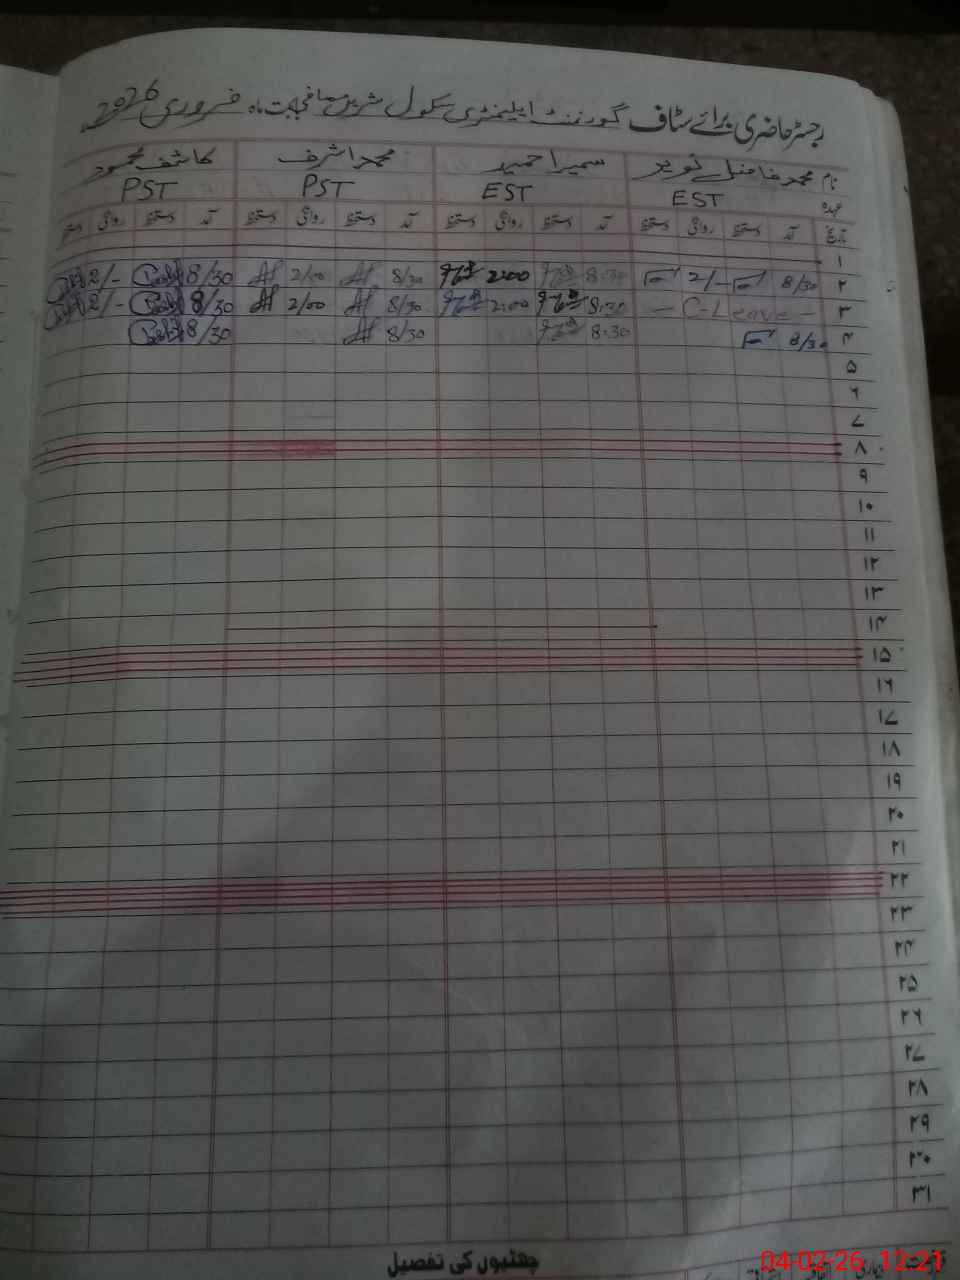 رجسٹر حاضری برائے سٹاف گورنمنٹ ایلیمنٹری سکول بابت ماہ فروری 2026ء
نام محمد فاضل تنویر سمیرا حمید محمد اشرف کاشف محمود
عہدہ EST EST PST PST
تاریخ آمد دستخط روانگی دستخط آمد دستخط روانگی دستخط آمد دستخط روانگی دستخط آمد دستخط روانگی دستخط
۱
۲ 8/30 2/- 8:30 2:00 8/30 2/00 8/30 2/-
۳ - C-Leave - 8:30 2:00 8/30 2/00 8/30 2/-
۴ 8/30 8:30 8/30 8/30
۵
۶
۷
۸
۹
۱۰
۱۱
۱۲
۱۳
۱۴
۱۵
۱۶
۱۷
۱۸
۱۹
۲۰
۲۱
۲۲
۲۳
۲۴
۲۵
۲۶
۲۷
۲۸
۲۹
۳۰
۳۱
چھٹیوں کی تفصیل
04-02-26 12:21